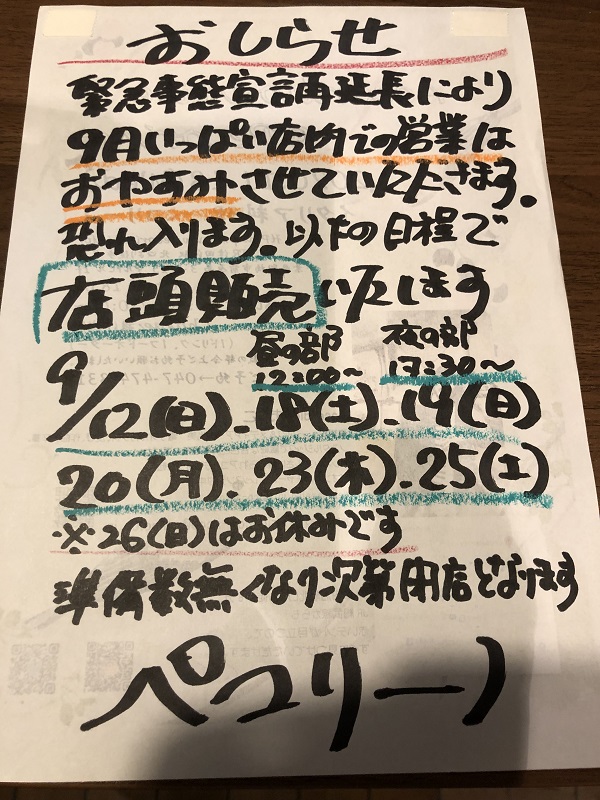 おしらせ
緊急事態宣言再延長により
9月いっぱい店内での営業は
おやすみさせていただきます。
恐れ入ります。以下の日程で
店頭販売いたします
昼の部 夜の部
12:00～ 17:30～
9/12(日).18(土).19(日)
20(月).23(木).25(土)
※26(日)はお休みです
準備数無くなり次第閉店となります
ペコリーノ